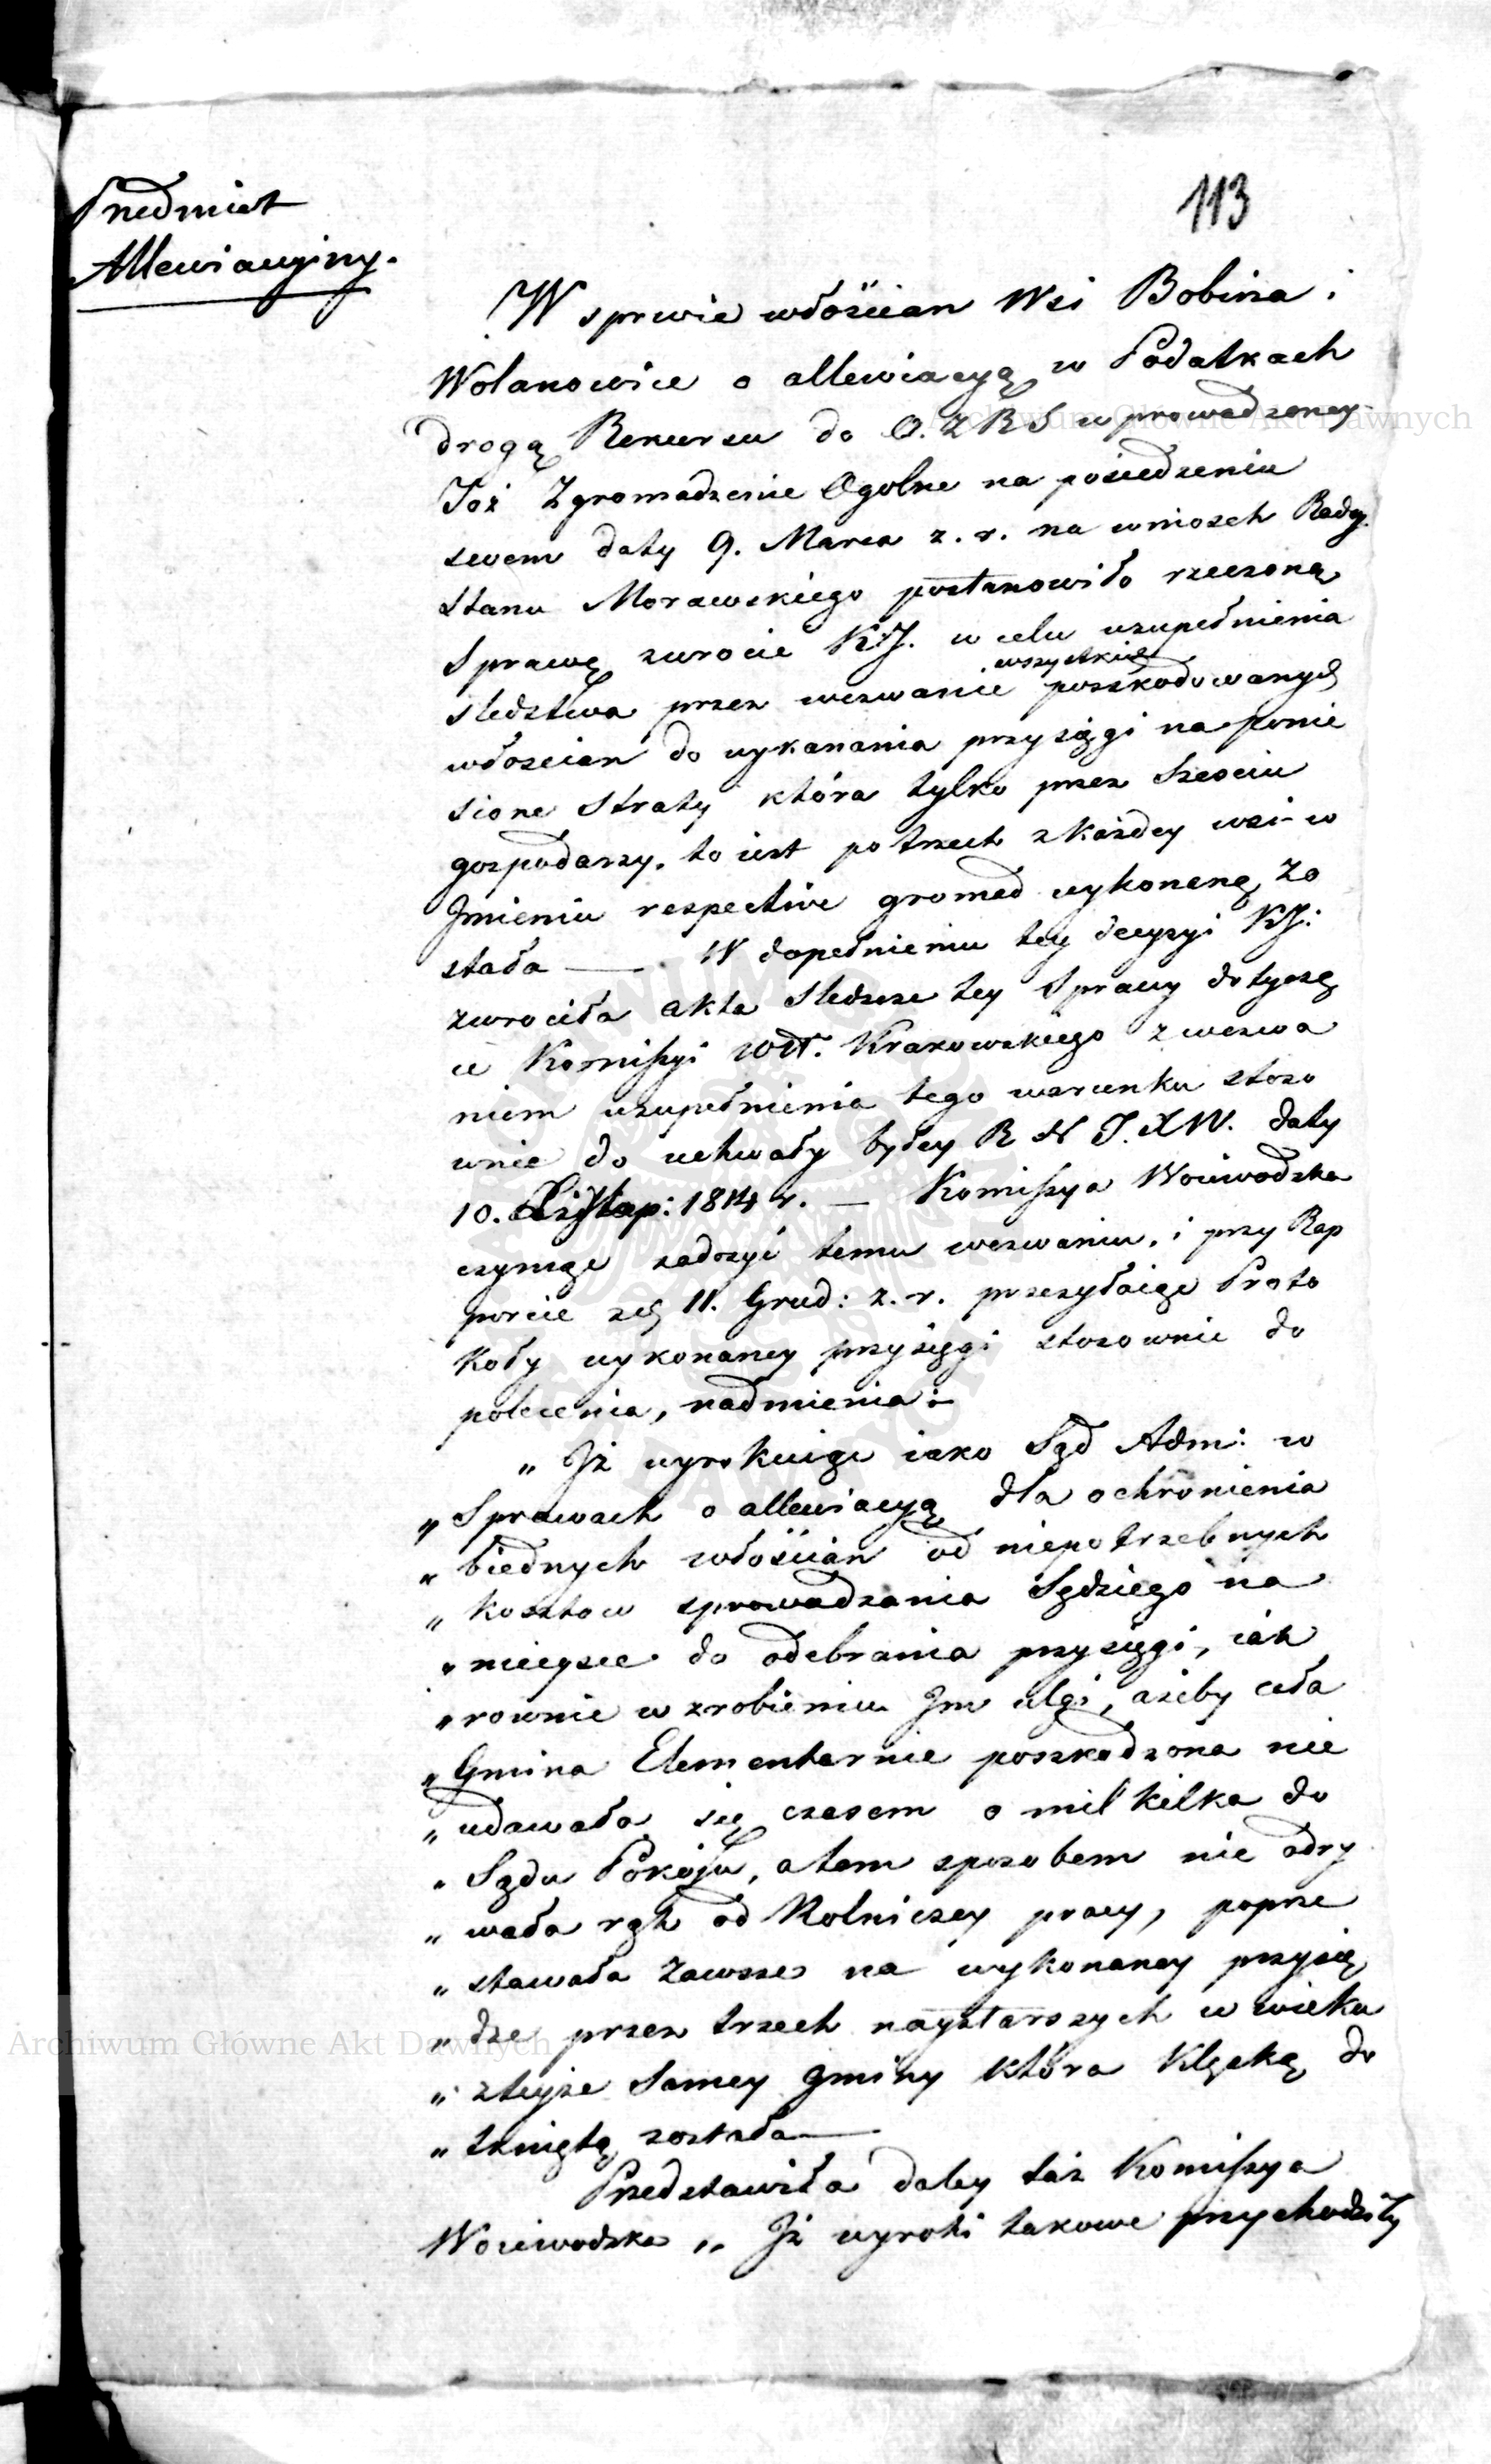 Przedmiot
Allewiacyiny.
113
W sprwie włościan Wsi Bobina i
Wolanowice o allewiacyą w Podatkach
drogą Rekursu do O.ZRS uprowadzoney
Toż Zgromadzenie Ogolne na posiedzeniu
swem daty 9. Marca z. r. na wniosek Radcy
Stanu Morawskiego postanowiło rzeczoną
Sprawę zwrocic w celu uzupełnienia
sledztwa przez wezwanie wszystkich poszkodowanych
włoscian do wykanania przysięgi na ponie
sione Straty która tylko przez Szesciu
gospodarzy. to iest po trzech z Każdey wsi w
Jmieniu respective gromad wykonaną zo
stała — W dopełnieniu tey decyzyi
zwrociła akta Sledcze tey Sprawy dotyczą
ce Komissyi Wdt. Krakowskiego z wezwa
niem uzupełnienia tego warunku stoso
wnie do uchwały byłey R N T. X W. daty
10. Listop: 1814 r. — Komissya Woiewodzka
czyniąc zadosyć temu wezwaniu, i przy Rap
porcie z d. 11. Grud: z. r. przesyłaiąc Proto
koły wykonaney przysięgi stosownie do
polecenia, nadmienia:
„ Jż wyrokuiąc iako Sąd Adm: w
„ Sprawach o allewiacyą dla ochronienia
„ biednych włościan od niepotrzebnych
„ kosztow sprowadzania Sędziego na
„ mieysce do odebrania przysięgi, iak
„ rownie w zrobieniu Jm ulgi, ażeby cała
„ Gmina Elementarnie poszkodzona nie
„ udawała się czasem o mil kilka do
„ Sądu Pokoju, a tem sposobem nie odry
„ wała rąk od Rolniczey pracy, poprze
„ stawała zawsze na wykonaney przysię
„ dze przez trzech naystarszych w wieku
„ zteyże Samey gminy która klęską do
„ tkniętą została —
Przedstawiła daley taż Komissya
Woiewodzka „ Jż wyroki takowe przychodziły
Archiwum Główne Akt Dawnych
Archiwum Główne Akt Dawnych